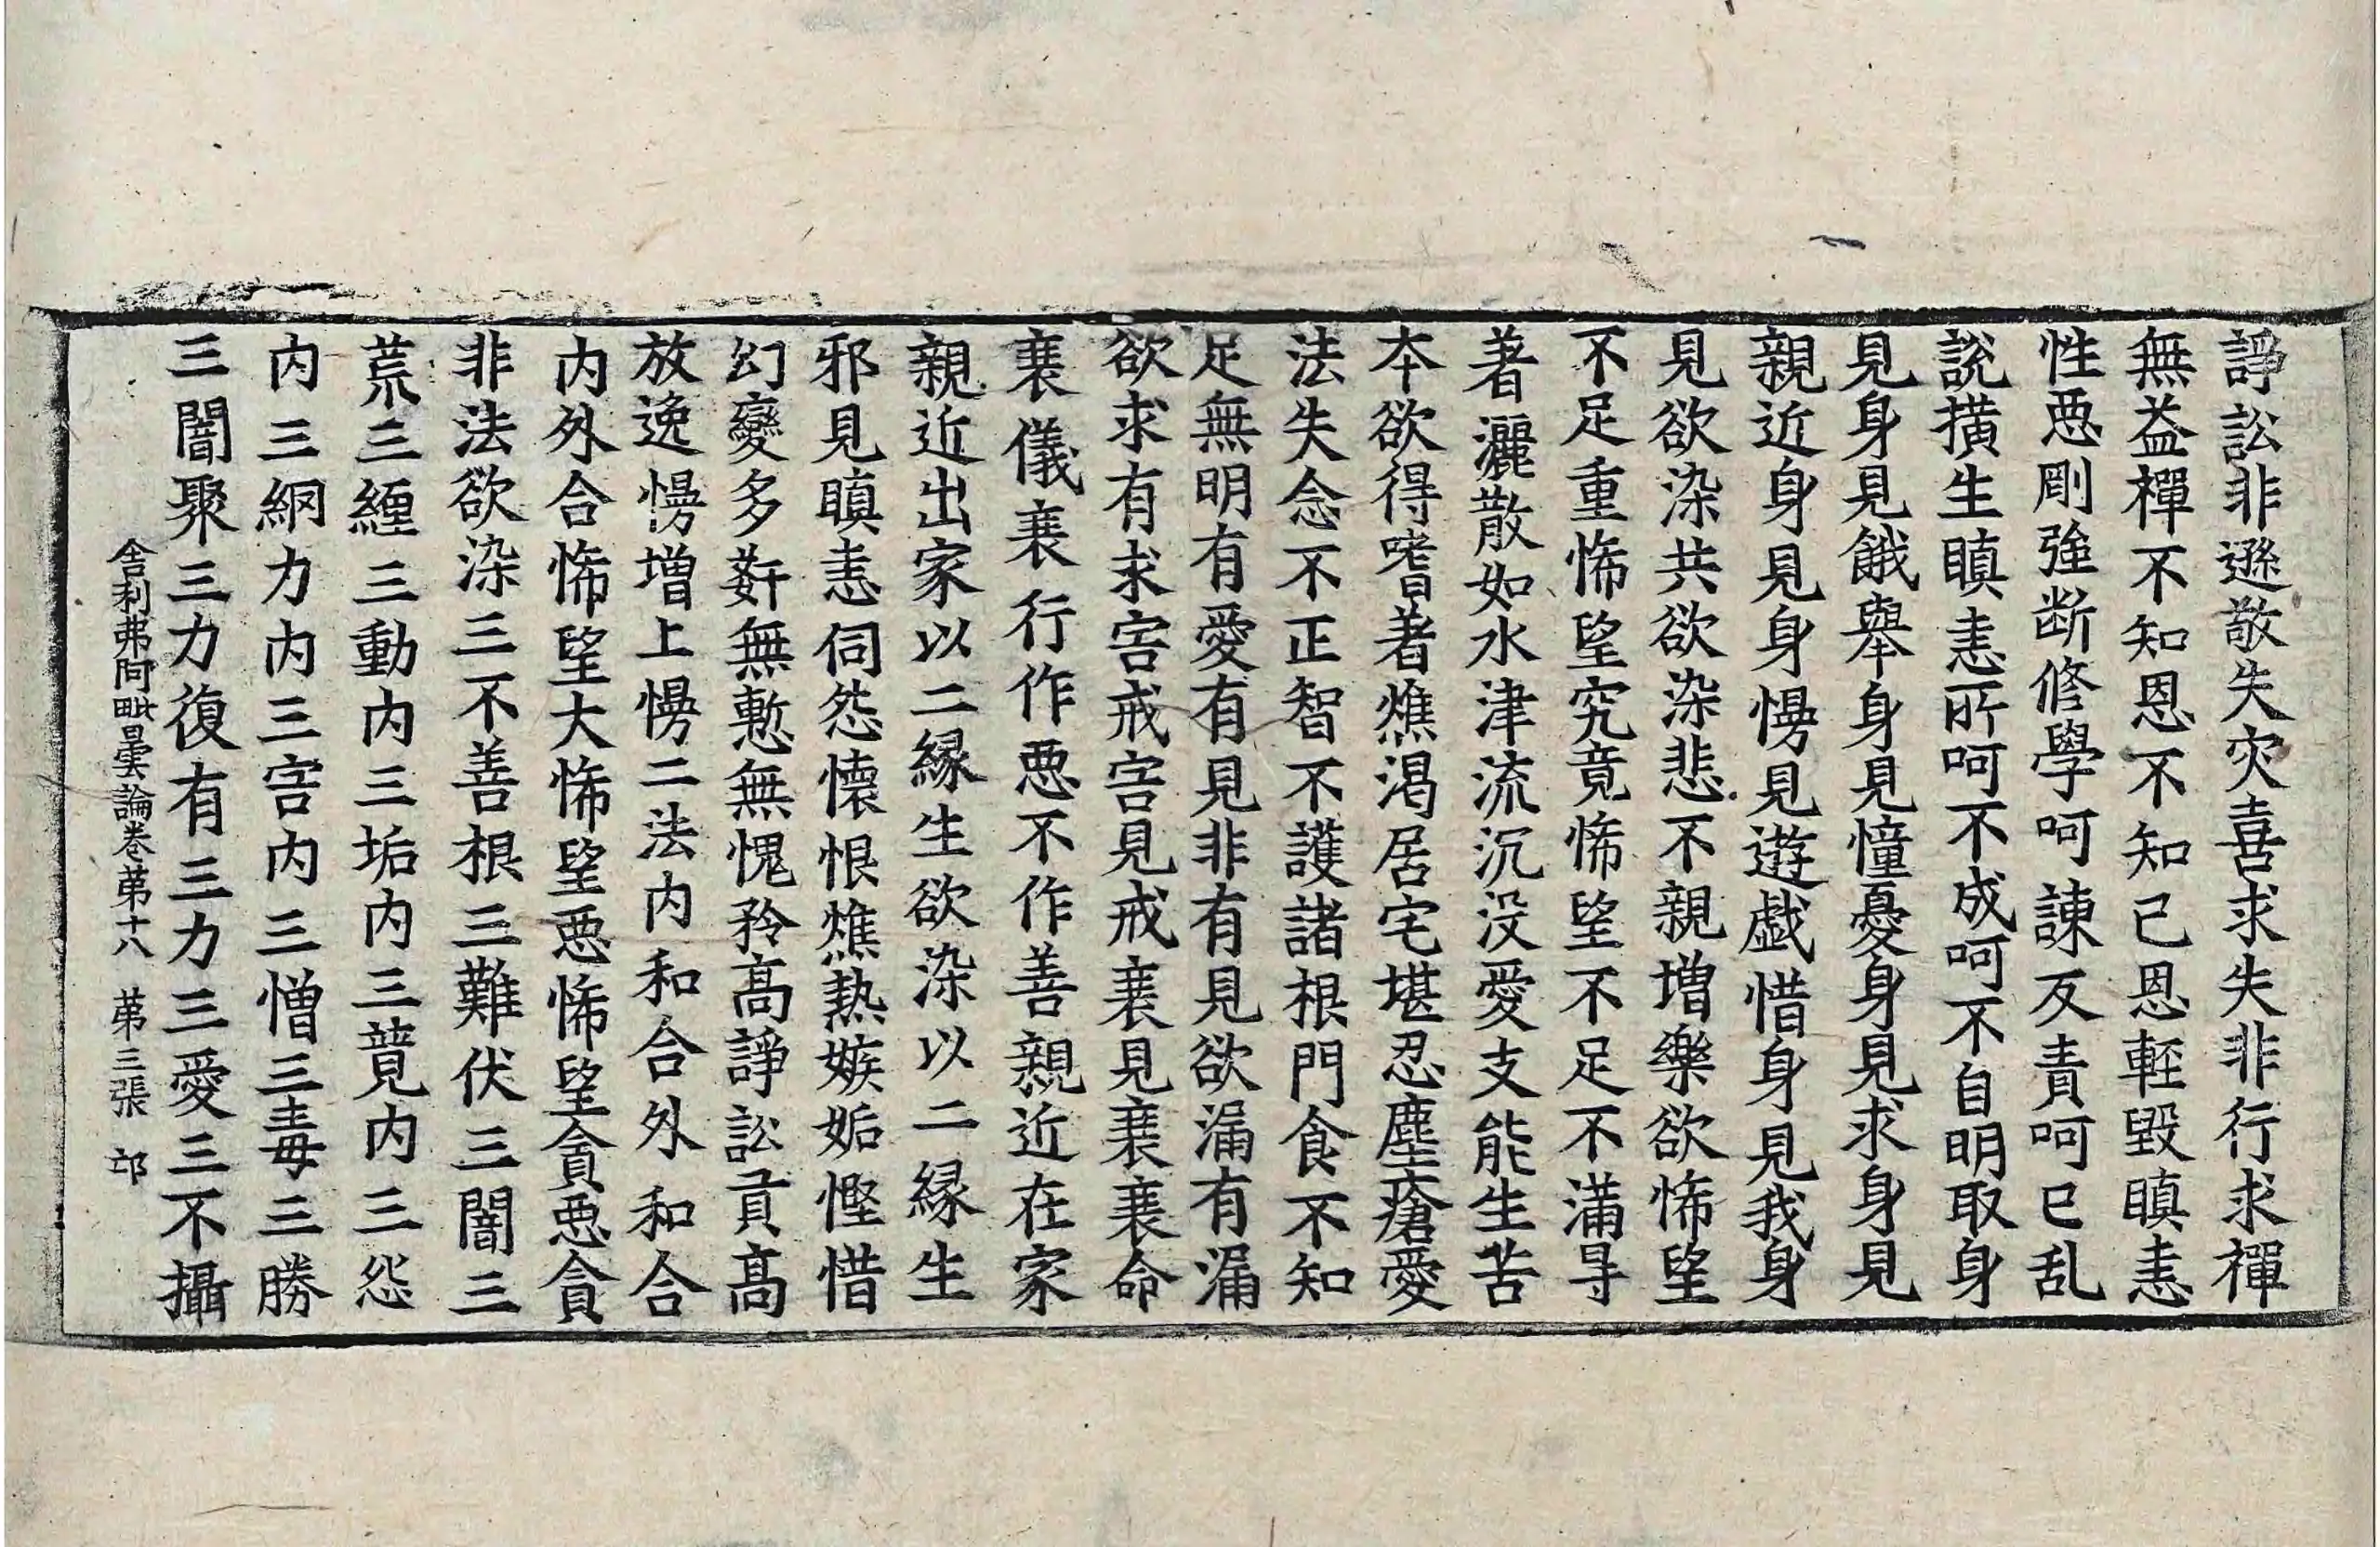 諍訟非遜敬失灾喜求失非行求禪
無益樿不知恩不知己恩輕毀瞋恚
性惡剛強断修學呵諫反責呵已乱
説撗生瞋恚所呵不成呵不自明取身
見身見餓舉身見憧憂身見求身見
親近身見身慢見遊戯惜身見我身
見欲染共欲染悲不親増樂欲悕望
不足重悕望究竟悕望不足不滿㝵
著灑散如水津流沉没愛支能生苦
本欲得嗜著燋渴居宅堪忍塵瘡愛
法失念不正智不護諸根門食不知
足無明有愛有見非有見欲漏有漏
欲求有求害戒害見戒衰見衰衰命
衰儀衰行作惡不作善親近在家
親近出家以二縁生欲染以二縁生
邪見瞋恚伺怨懷恨燋熱嫉妬慳惜
幻變多姧無慙無愧矜髙諍訟貢髙
放逸慢增上慢二法内和合外和合
内外合悕望大悕望惡悕望貪惡貪
非法欲染三不善根三難伏三闇三
荒三纏三動内三垢内三蓂内三怨
内三網力内三害内三憎三毒三勝
三闇聚三力復有三力三愛三不攝
舎利弗阿毗曇論卷苐十八　苐三張　邙